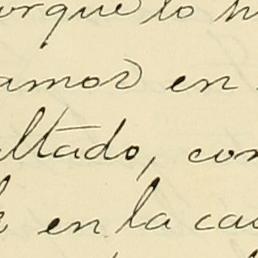 orque lo h
amor en
ultado, con
e en la cas